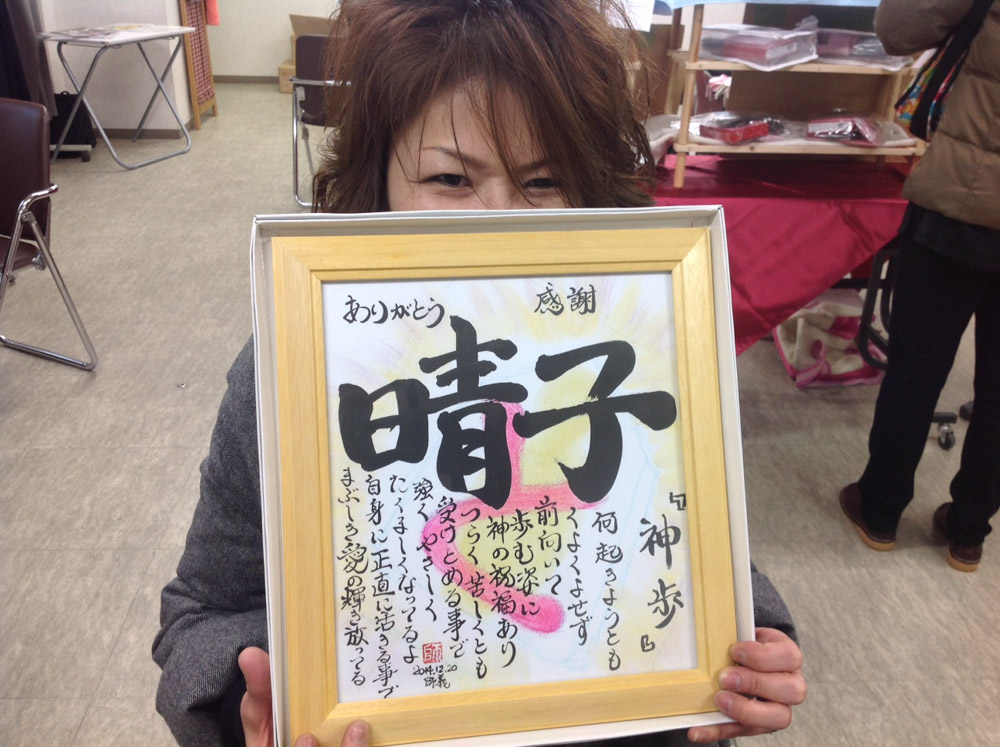 ありがとう
感謝
晴子
『神歩』
何起きようとも
くよくよせず
前向いて
歩む姿に
神の祝福あり
つらく苦しくとも
受けとめる事で
強くやさしく
たくましくなってるよ
自身に正直に活きる事で
まぶしき愛の輝き放ってる
師
2014.12.20